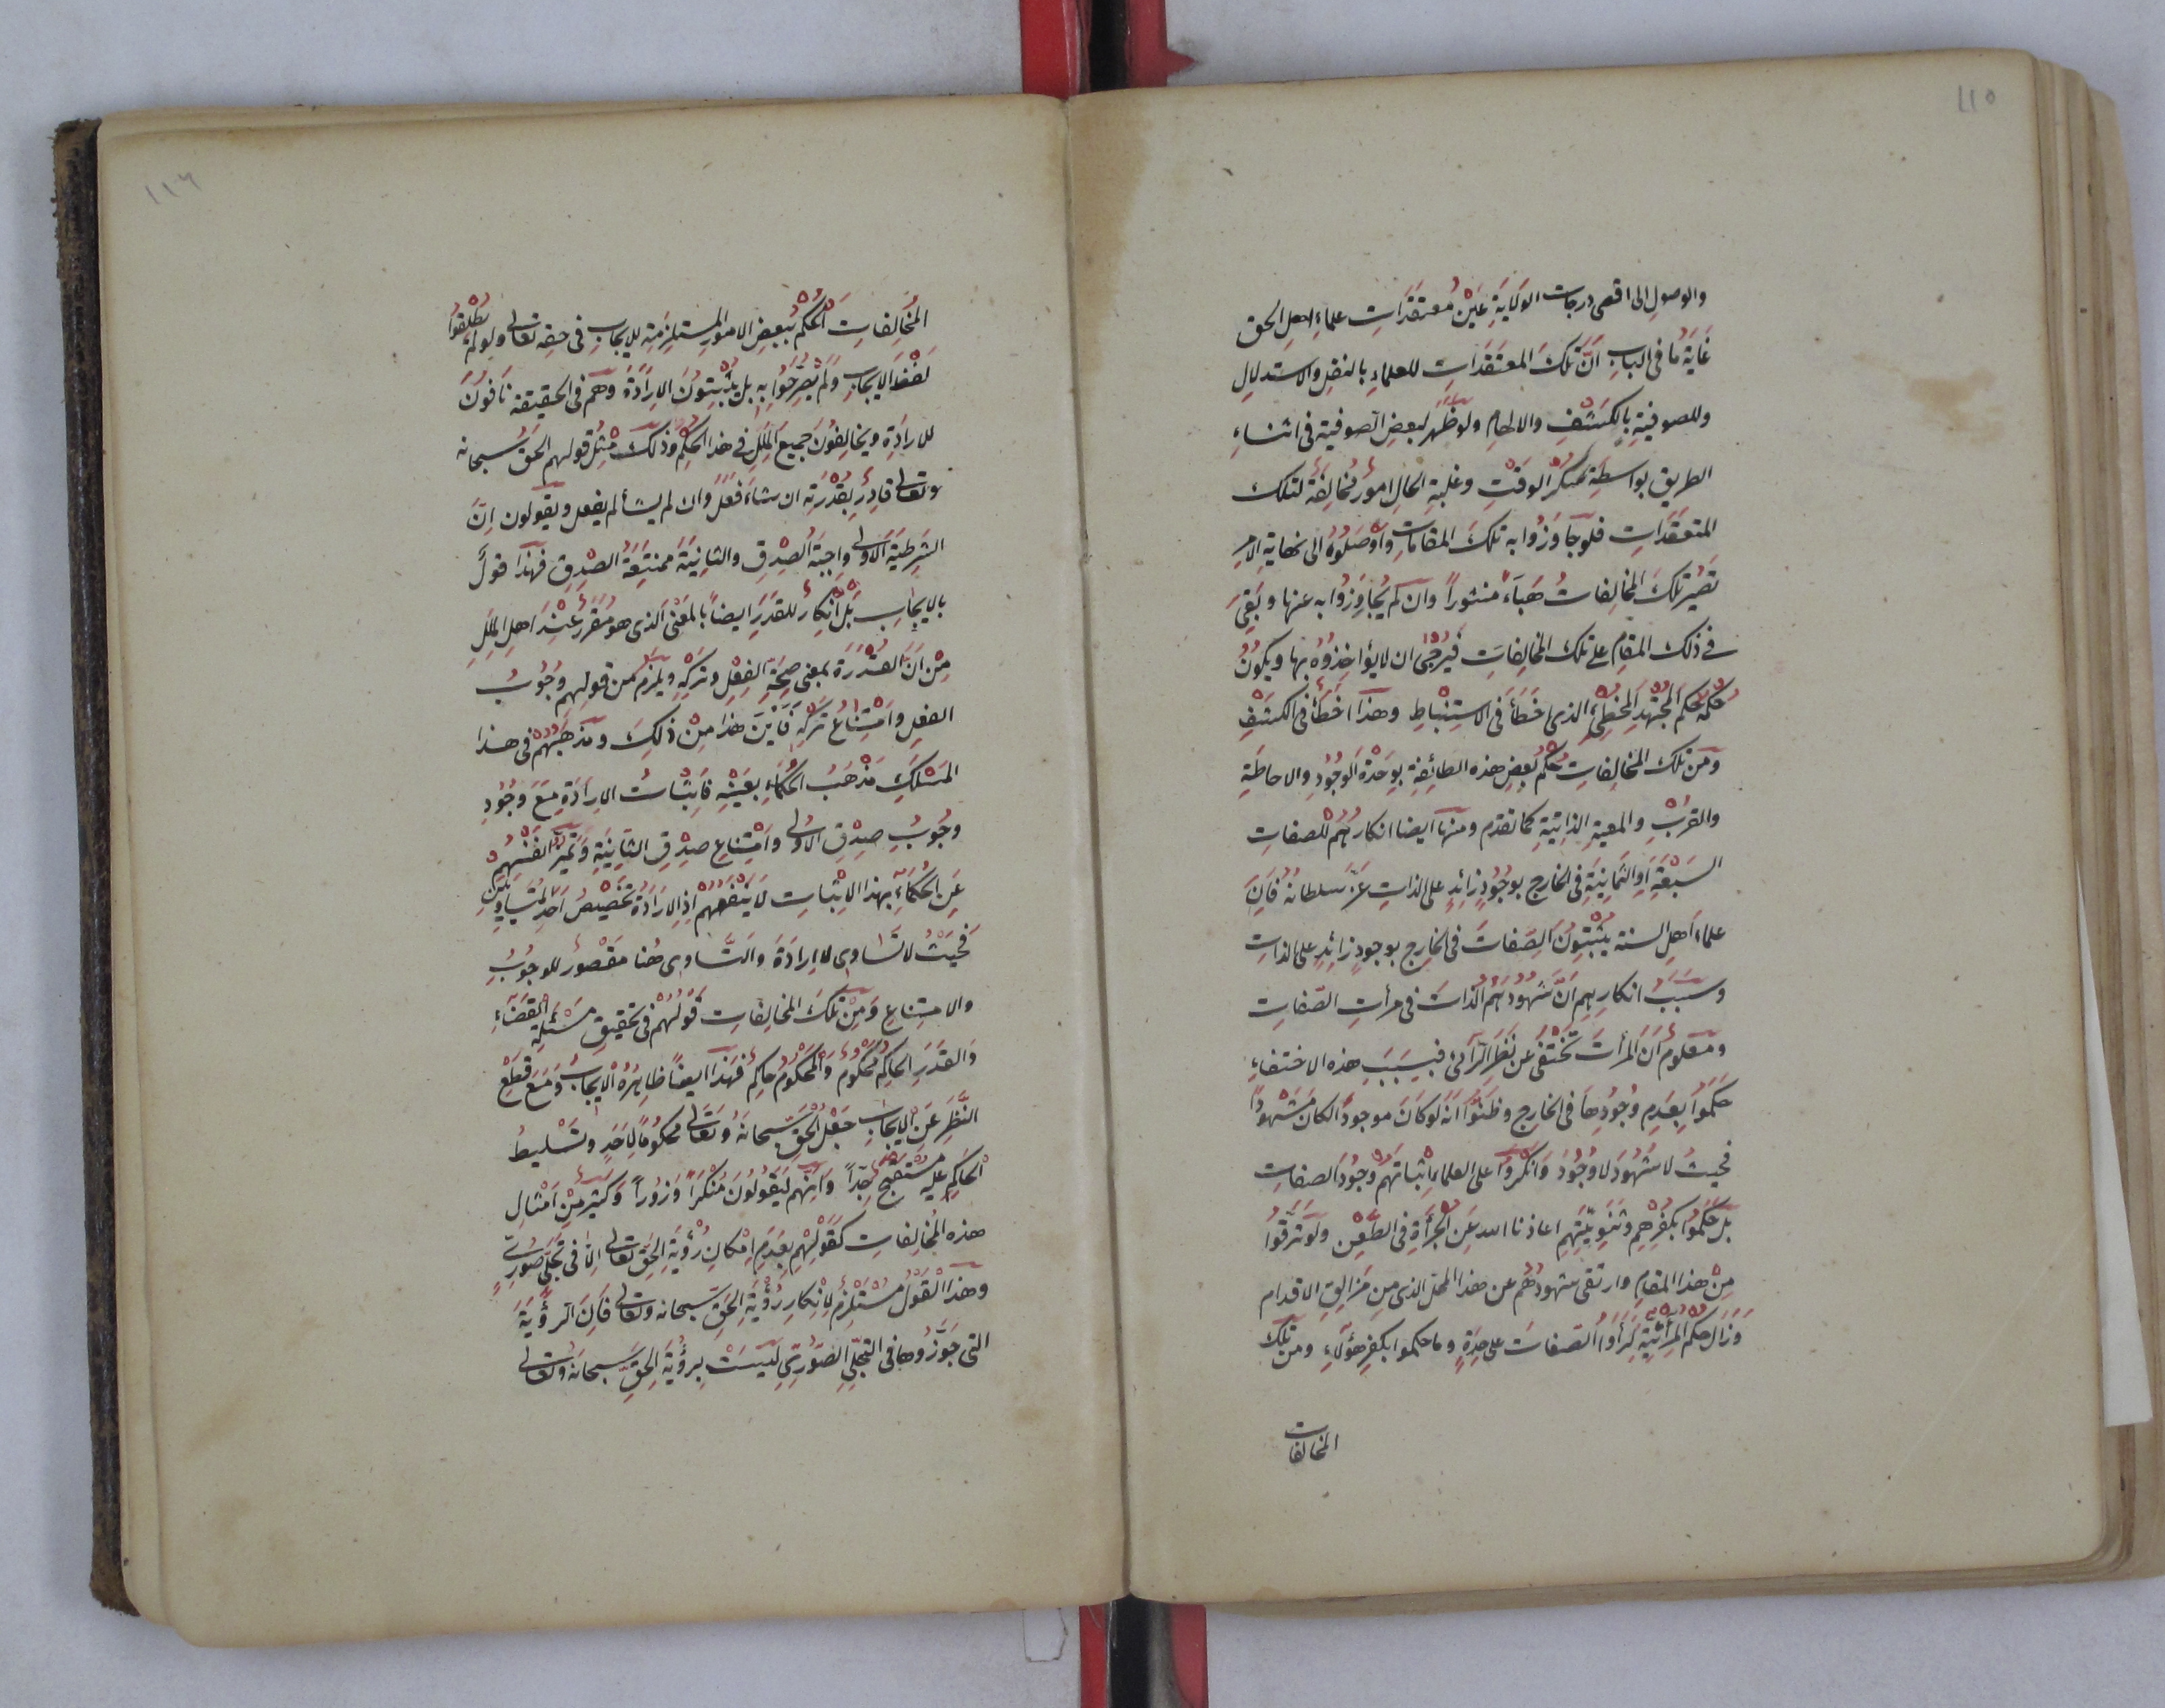 ١١٥
والوصول الى اقصى درجات الوَلَايَةِ عَيْنُ مُعتقَدَاتِ علماءِ اهلِ الحق
غَايَةُ مَا فى البابِ اَنَّ تلكَ المعتَقَدَاتِ للعلماءِ بالنقلِ والاستدلالِ
وللصوفيةِ بالكَشْفِ والالهامِ ولو ظَهَر لبعضِ الصوفية فى اثناءِ
الطريق بواسطةِ سُكْرِ الوقتِ وغلبةِ الحالِ امورٌ مُخالِفَةٌ لتلك
المتعقَدَاتِ فلو جَاوَزُوا به تلكَ المقاماتِ وَاَوْصَلُوهُ الى نهايةِ الامرِ
تَصيرُ تلكَ المخالِفاتُ هَبَاءً منثورًا وان لَم يُجَاوِزُوا به عنها وبَقِىَ
فى ذلك المقامِ على تلك المخالِفاتِ فيُرجَى ان لا يؤاخِذُوهُ بها ويكُونُ
حُكْمُهُ حُكْمَ المُجْتَهِدِ المُخْطِئِ الذى اَخطَأَ فى الاستِنْبَاطِ وهذا اَخطَأَ فى الكَشْفِ
ومَن تلك المخالِفاتِ حُكْمُ بَعضِ هذه الطائفةِ بِوَحْدَةِ الوُجُودِ والاحاطةِ
والقُرْبِ والمعيةِ الذاتِيَّةِ كما تقدم ومنها ايضا انكارُهُمْ للصفات
السَّبْعَةِ اَوِ الثَّمَانِيَةِ فى الخارجِ بوجُودٍ زائدٍ على الذاتِ عَزَّ سلطانهُ فَاِنَّ
علماءَ اهلِ السنة يُثْبِتُونَ الصِّفَاتَ فى الخارجِ بوجودٍ زائدٍ على الذاتِ
وسَبَبُ انكارِهِم اَنَّ شُهُودَهُمُ الذَّاتَ فى مرأتِ الصِّفاتِ
ومَعْلومٌ اَنَّ المرأتَ تَخْتَفى عَن نَظَرِ الرَّائى فبِسَبَبِ هذه الاختفاءِ
حَكَمُوا بِعَدَمِ وُجُودِهَا فى الخارجِ وظَنُّوا اَنَّهُ لوكَانَ موجودًا لكان مَشْهُودًا
فَحيثُ لا شُهُودَ لا وُجُودَ وَاَنْكَرُوا على العلماءِ اِثْباتَهُمْ وُجُودَ الصفاتِ
بَلْ حَكَمُوا بكُفْرِهِم وثَنَوِيَّتِهِم اعاذنا الله عَنِ الجُرْأَةِ فى الطَّعْنِ ولَو تَرَقَّوْا
مِنْ هذا المقامِ وارتَقَى شهودُهُم عن هذا المحلِّ الذى من مَزَالِقِ الاقدامِ
وَزَالَ حُكمُ المِرأَتِيَّةِ لَرَأَوُا الصِّفاتَ على حِدَةٍ وما حكموا بكفرِ هؤلاءِ ومن تلك
المخالفات
١١٦
المُخَالِفاتِ الحُكْمُ ببعضِ الامورِ المستلزِمَةِ للايجابِ فى حقهِ تعالى ولولم يُطْلِقُوا
لَفْظَ الايجابِ وَلَم يُصَرِّحُوا به بل يُثْبِتُونَ الارادَةَ وَهُم فى الحقيقة نَافُونَ
للارادَةِ ويخالِفُونَ جميعَ المِلَلِ فى هذا الحُكمِ وذلكَ مثلُ قولهم الحَقُّ سبحانه
وتعالى قادِرٌ بِقُدْرَتِه ان شَاءَ فَعَلَ وان لم يشأ لم يفعل ويقولون اِنَّ
الشَرطيّةَ الاُولى واجِبَةُ الصِّدقِ والثانِيَةَ ممتنِعَةُ الصِّدقِ فهذا قولٌ
بالايجابِ بَلْ اِنكارٌ للقَدَرِ ايضاً بالمَعْنى الذى هو مُقَرَّرٌ عِنْدَ اهلِ المِلَلِ
مِنْ انَّ القُدْرَةَ بمعنى صِحَّةِ الفِعْلِ وتركِهِ ويلزمُ من قولهم وجُوبُ
الفعلِ واِمْتِنَاعُ تَركِهِ فَاَيْنَ هذا مِنْ ذلكَ ومَذهَبُهُمْ فى هذا
المَسْلَكِ مَذهَبُ الحُكَماءِ بعَيْنِهِ فَاِثْبَاتُ الارادَةِ مَعَ وُجُودِ
وجُوبِ صِدْقِ الاُولى واِمتِنَاعِ صِدْقِ الثَّانِيَةِ وتَمَيُّزُ اَنفُسِهِم
عَنِ الحُكَماءِ بهذا الاثباتِ لا يَنْفَعُهُمْ اذِ الارَادَةُ تَخصيصُ اَحَدِ المُتَساوِيَينِ
فَحَيْثُ لا تَساوِى لا ارادَةَ وَالتَّساوِى هُنا مَقْصُورٌ للوجُوبِ
والامتِنَاعِ وَمِنْ تلكَ المخالِفاتِ قَولُهُمْ فى تحقيقِ مَسْئَلَةِ القَضَاءِ
وَالقَدَرِ الحاكِمُ مَحكُومٌ وَالمَحْكُومُ حاكِمٌ فهَذا ايضاً ظاهِرُهُ الايجابُ ومَعَ قَطْعِ
النَّظَرِ عَنِ الايجابِ جَعْلُ الحَقِّ سبحانَهُ وتَعَالى مَحكُوماً لِاَحَدٍ وتَسْليطُ
الحاكِمِ عليه مُسْتَقبَحٌ جِدًّا وَاِنَّهُم لَيَقُولُونَ مُنْكَرًا وَزُوراً وكَثيرٌ مِنْ اَمْثالِ
هذه المُخالِفاتِ كَقَوْلِهِمْ بِعَدَمِ اِمْكانِ رُؤيَةِ الحَقِّ تعالى اِلاَّ فى تَجَلّى صُورِىٍّ
وهذا القَولُ مُستَلزِمٌ لاِنكارِ رُؤْيَةِ الحَقِّ سبحانه وتعالى فاِنَّ الرُّؤيَةَ
التى جَوَّزُوها فى التجلِّى الصُّوَرِىِّ لَيسَتْ برؤيَةِ الحَقِّ سبحانَهُ وتعالى